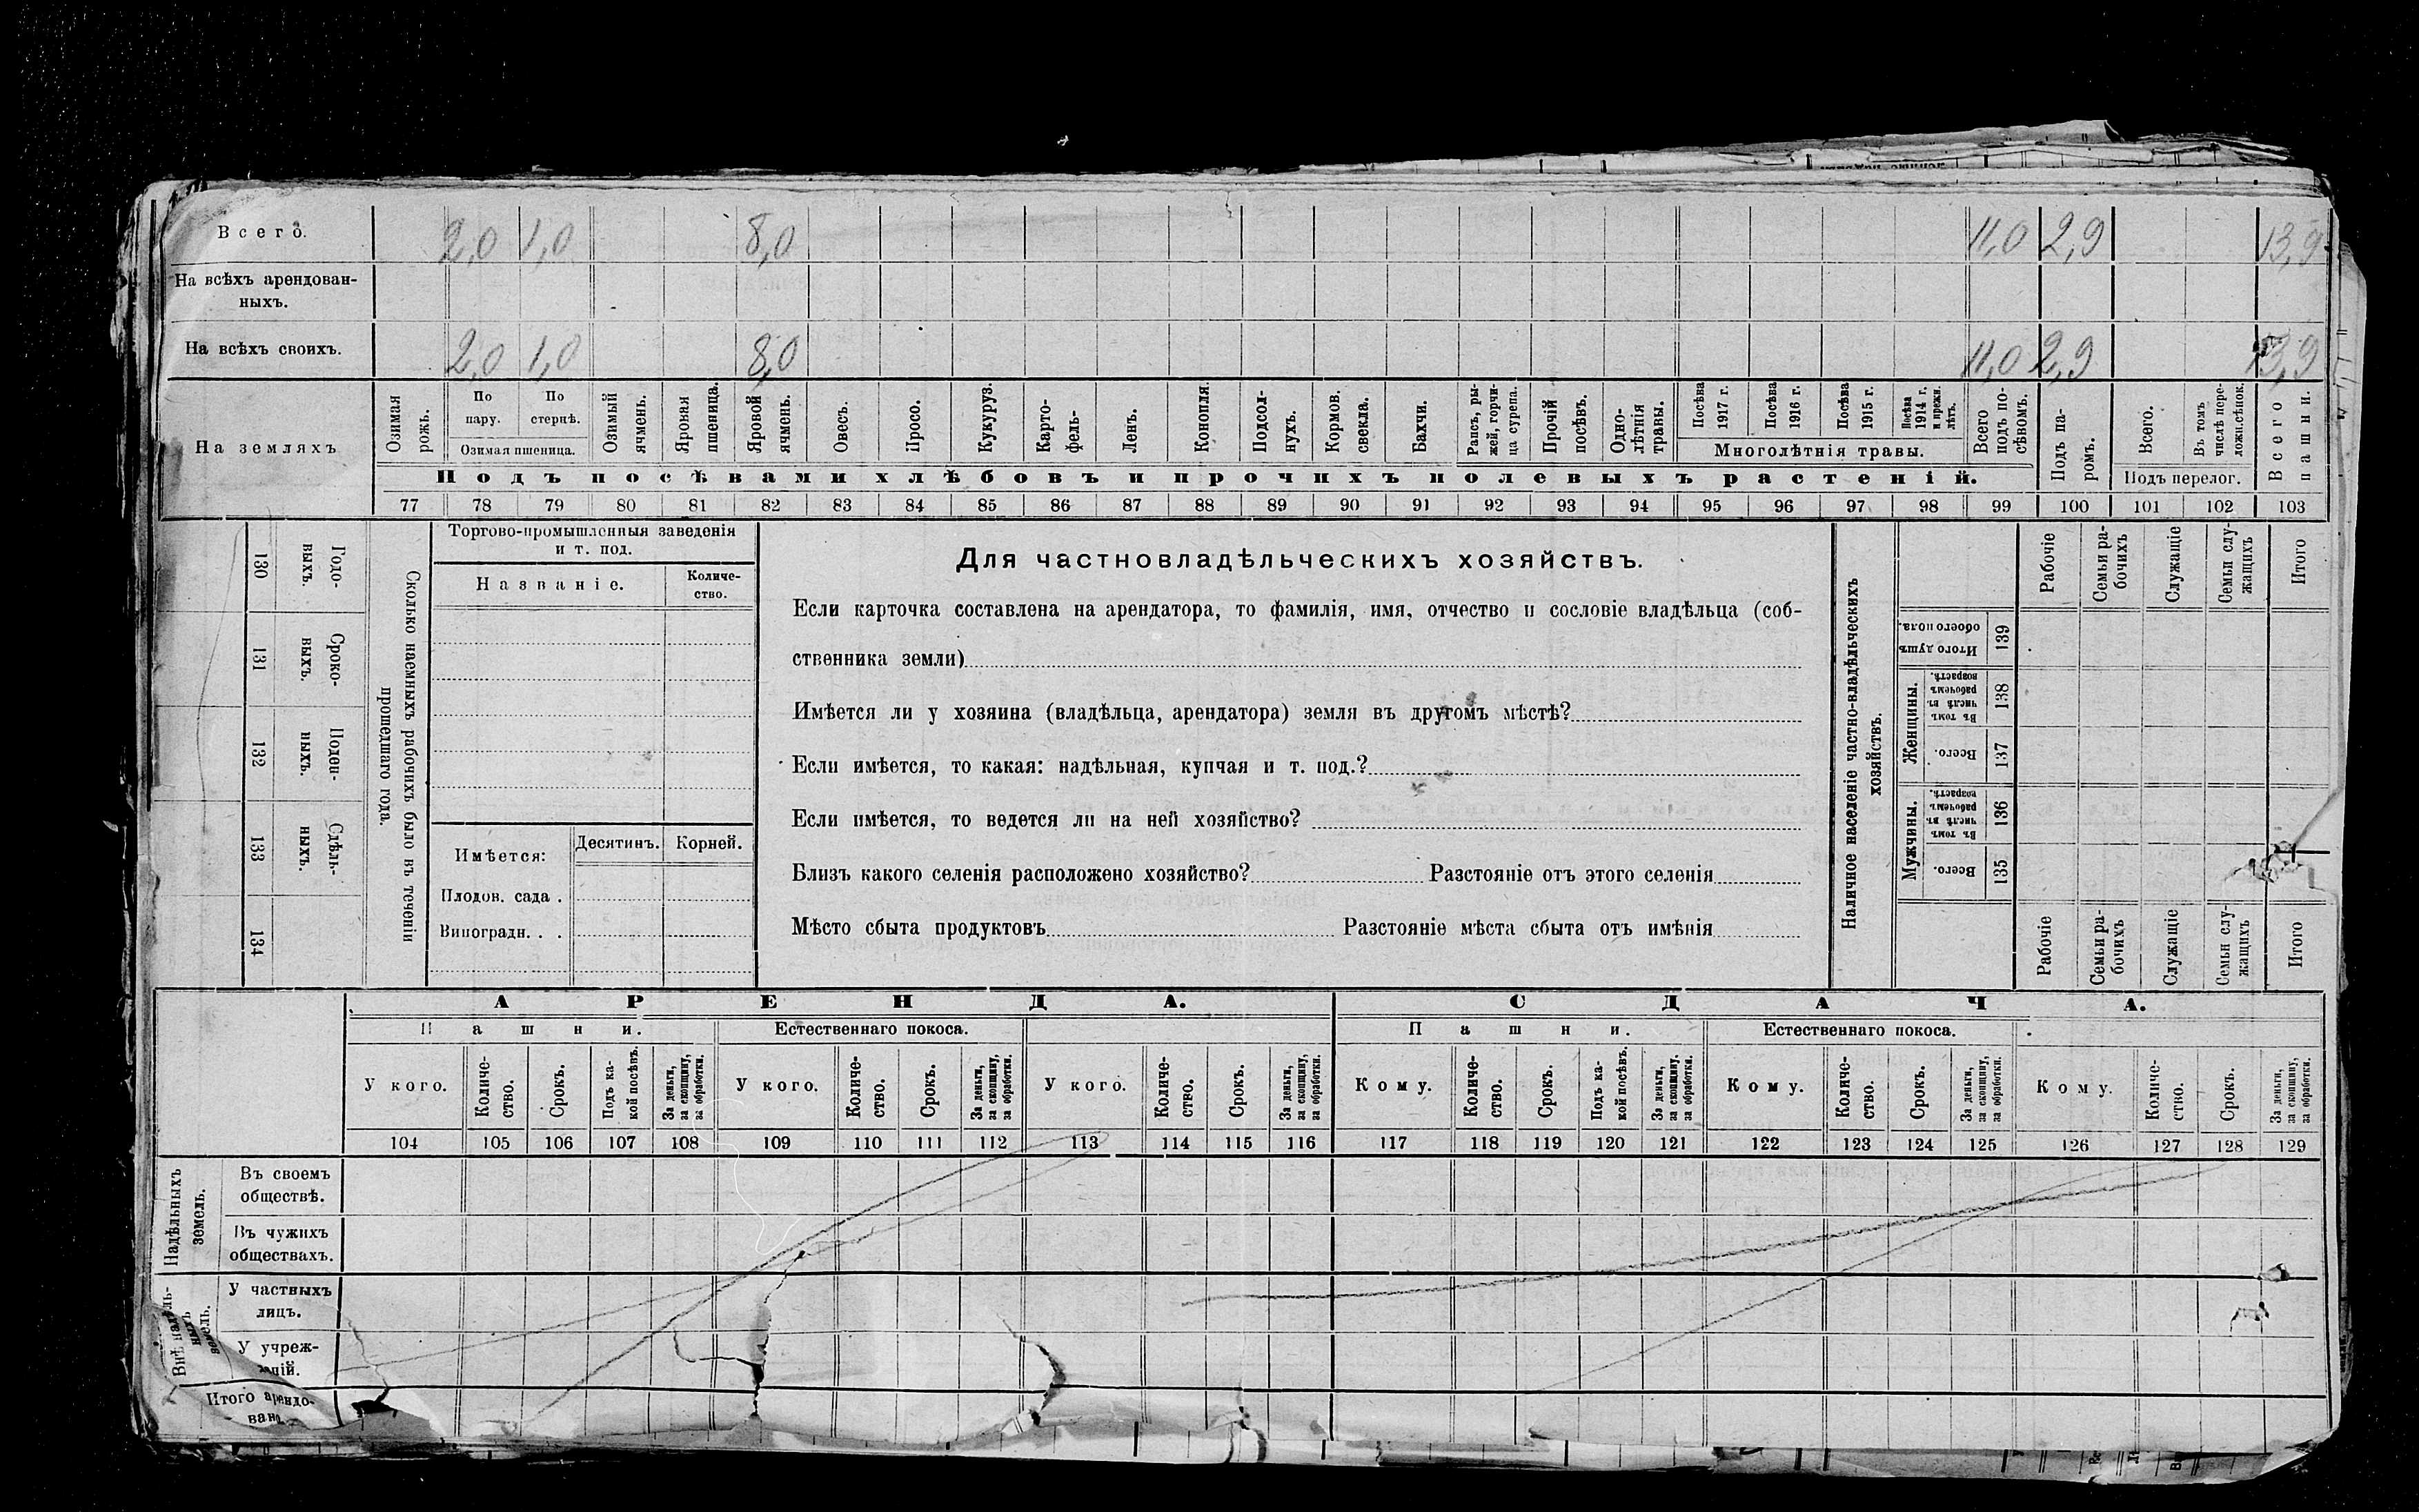 Всего. 2,0 1,0 8,0 11,0 2,9 13,9
На всѣхъ арендован-
ныхъ.
На всѣхъ своихъ. 2,0 1,0 8,0 11,0 2,9 13,9
На земляхъ
Озимая рожь.
По пару.
По стернѣ.
Озимая пшеница.
Озимый ячмень.
Яровая пшеница.
Яровой ячмень.
Овесъ.
Просо.
Кукуруз.
Карто-
фель-
Ленъ.
Конопля.
Подсол-
нухъ.
Кормов. свекла.
Бахчи.
Рапсъ, ры-
жей, горчи-
ца сурепа.
Прочій посѣвъ.
Одно-
лѣтнія травы.
Посѣва 1917 г.
Посѣва 1916 г.
Посѣва 1915 г.
Посѣва 1914 г. и прежн. лѣтъ.
Многолѣтнія травы.
Всего подъ по-
сѣвомъ.
Подъ па-
ромъ.
Всего.
Въ томъ числѣ пере-
ложн.сѣнок.
Подъ перелог.
Всего пашни.
Подъ посѣвами хлѣбовъ и прочихъ полевыхъ растеній.
77 78 79 80 81 82 83 84 85 86 87 88 89 90 91 92 93 94 95 96 97 98 99 100 101 102 103
130 Годо-
выхъ.
131 Сроко-
выхъ.
132 Поден-
ныхъ.
133 Сдѣль-
ныхъ.
134
Сколько наемныхъ рабочихъ было въ теченіи
прошедшаго года.
Торгово-промышленныя заведенія
и т. под.
Названіе.
Количе-
ство.
Имѣется:
Десятинъ. Корней.
Плодов. сада .
Виноградн. . .
Для частновладѣльческихъ хозяйствъ.
Если карточка составлена на арендатора, то фамилія, имя, отчество и сословіе владѣльца (соб-
ственника земли)
Имѣется ли у хозяина (владѣльца, арендатора) земля въ другомъ мѣстѣ?
Если имѣется, то какая: надѣльная, купчая и т. под.?
Если имѣется, то ведется ли на ней хозяйство?
Близъ какого селенія расположено хозяйство? Разстояніе отъ этого селенія
Мѣсто сбыта продуктовъ Разстояніе мѣста сбыта отъ имѣнія
Наличное населеніе частно-владѣльческихъ
хозяйствъ.
Рабочіе
Семьи ра-
бочихъ
Служащіе
Семьи слу-
жащихъ
Итого
Итого душъ обоего пола. 139
Женщины.
Въ томъ числѣ въ рабочемъ возрастѣ. 138
Всего. 137
Мужчины.
Въ томъ числѣ въ рабочемъ возрастѣ. 136
Всего. 135
Рабочіе
Семьи ра-
бочихъ
Служащіе
Семьи слу-
жащихъ
Итого
АРЕНДА. СДАЧА.
Пашни. Естественнаго покоса. Пашни. Естественнаго покоса.
У кого.
Количе-
ство.
Срокъ.
Подъ ка-
кой посѣвъ.
За деньги,
за скопщину,
за обработки.
У кого.
Количе-
ство.
Срокъ.
За деньги,
за скопщину,
за обработки.
У кого.
Количе-
ство.
Срокъ.
За деньги,
за скопщину,
за обработки.
Кому.
Количе-
ство.
Срокъ.
Подъ ка-
кой посѣвъ.
За деньги,
за скопщину,
за обработки.
Кому.
Количе-
ство.
Срокъ.
За деньги,
за скопщину,
за обработки.
Кому.
Количе-
ство.
Срокъ.
За деньги,
за скопщину,
за обработки.
104 105 106 107 108 109 110 111 112 113 114 115 116 117 118 119 120 121 122 123 124 125 126 127 128 129
Надѣльныхъ
земель.
Въ своемъ
обществѣ.
Въ чужихъ
обществахъ.
У частныхъ
лицъ.
У учреж-
Итого арендо-